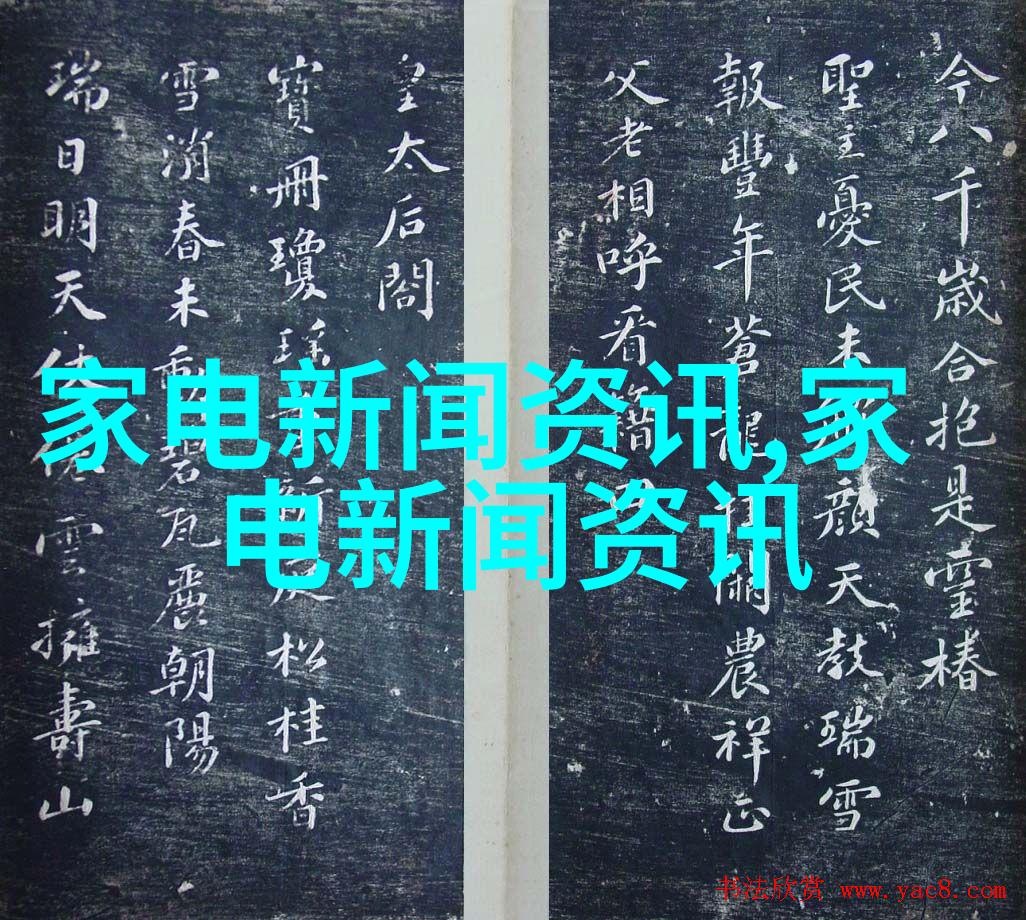 今八千歳合抱是靈椿
聖主憂民未顔天教瑞雪
報豐年蒼龍闕農祥正
父老相呼看
皇太后閤
寶冊瓊瑤新松桂香
雪消春未動碧瓦麗朝陽
瑞日明天仗雲擁壽山
家电新闻资讯,家
电新闻资讯
书法欣赏 www.yac8.com